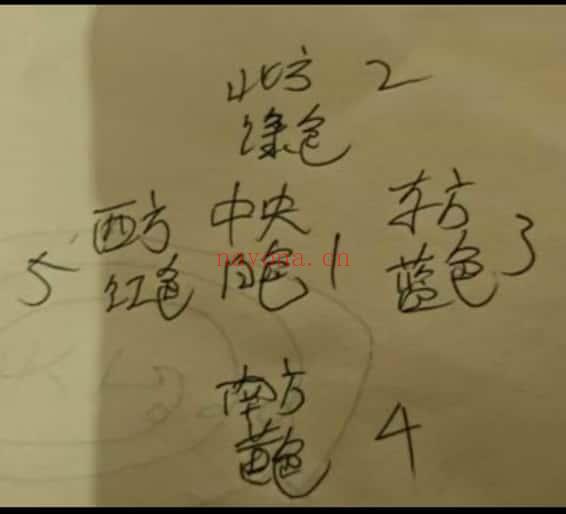 北方 2
绿色
西方 中央 东方
5 红色 白色 1 蓝色 3
nayona.cn
南方
黄色 4